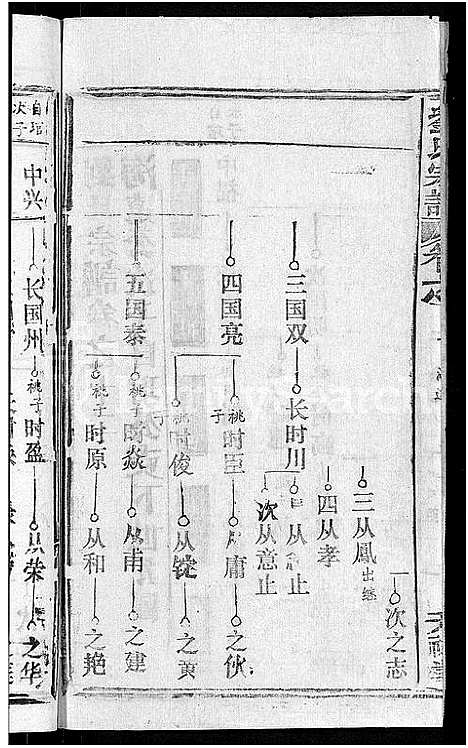 刘氏宗谱
卷
次之志
三从凤出继
四从孝
三国双
长时川
从
止
次从意止
四国亮
祧子时臣
庸
之伙
祧子时俊
从锭
之
五国泰
祧子时焱
从甫
之建
祧子时原
从和
之艳
次子
中兴
长国州
祧子时盈
从荣
之华